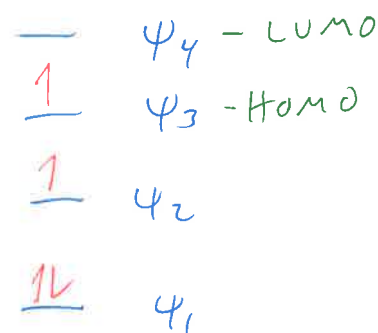 ψ4 - LUMO
1 ψ3 - HOMO
1 ψ2
1L ψ1